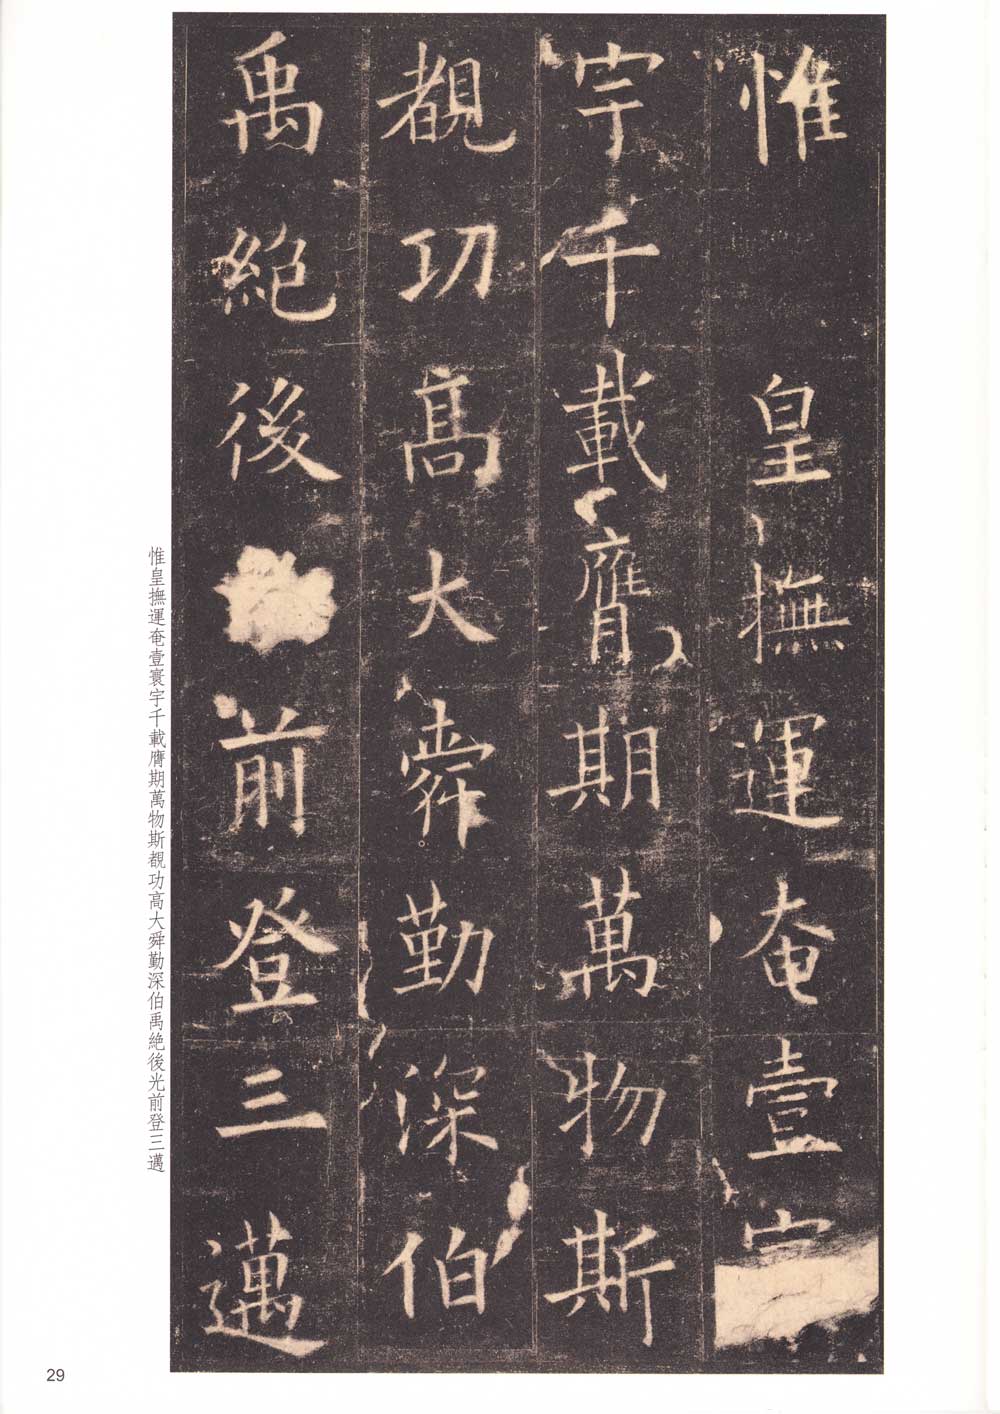 惟皇撫運奄壹
宇千載膺期萬物斯
覩功高大舜勤深伯
禹絕後前登三邁
惟皇撫運奄壹寰宇千載膺期萬物斯覩功高大舜勤深伯禹絕後光前登三邁
29